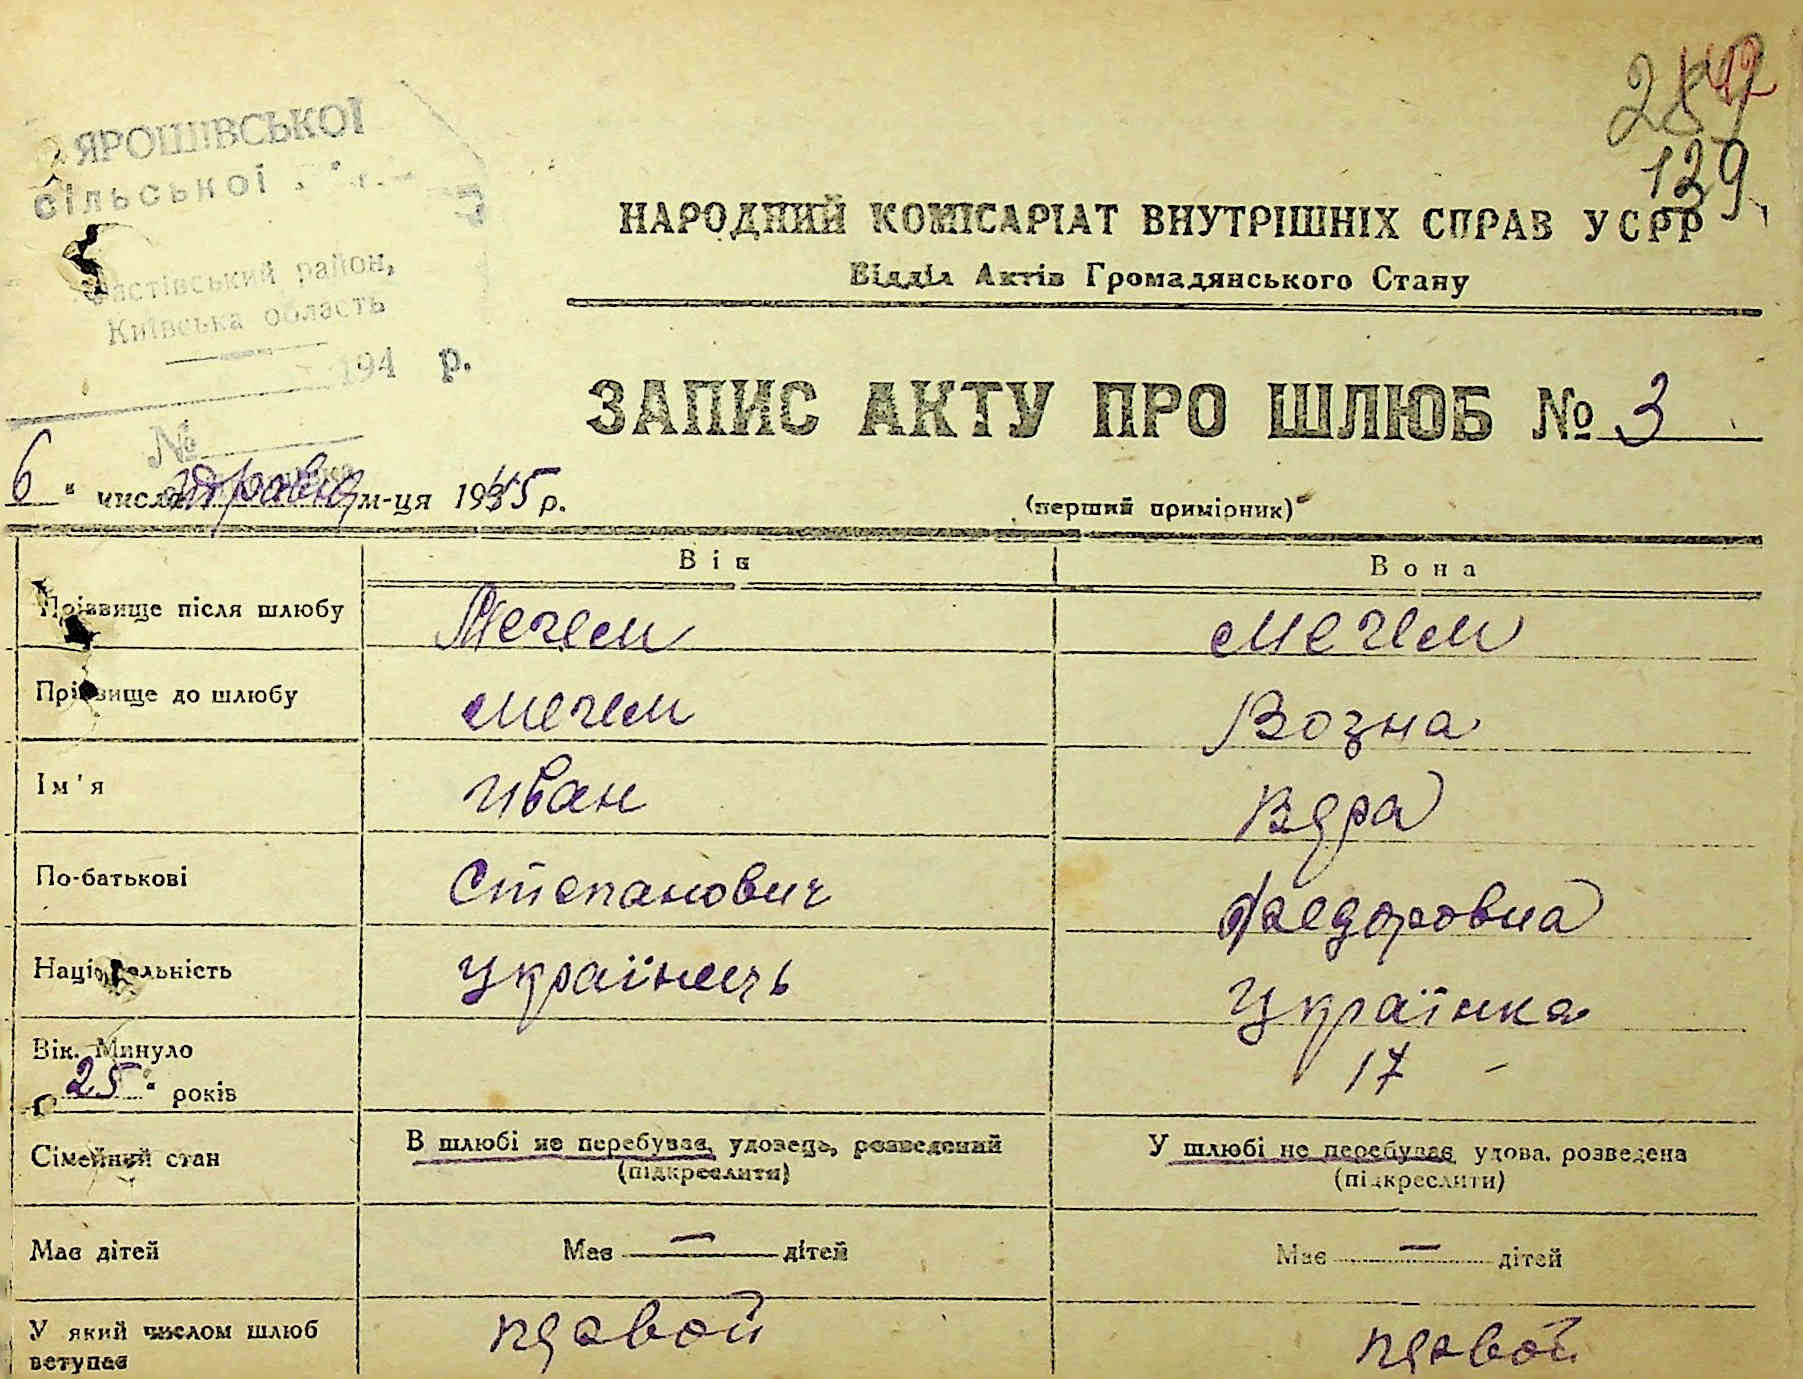 ЯРОШІВСЬКОЇ
сільської
287
142
129
Фастівський район,
Київська область
194 р.
№
НАРОДНИЙ КОМІСАРІАТ ВНУТРІШНІХ СПРАВ УСРР
Відділ Актів Громадянського Стану
ЗАПИС АКТУ ПРО ШЛЮБ № 3
6 " числа травня м-ця 1945 р.
(перший примірник)
Він Вона
Прізвище після шлюбу Мечем Мечем
Прізвище до шлюбу Мечем Возна
Ім'я Иван Вера
По-батькові Степанович Федоровна
Національність Українець Українка
Вік. Минуло
25 " років 17 -
Сімейний стан В шлюбі не перебуває, удовець, розведений У шлюбі не перебуває, удова, розведена
(підкреслити) (підкреслити)
Має дітей Має — дітей Має — дітей
У який числом шлюб
вступає первой первой